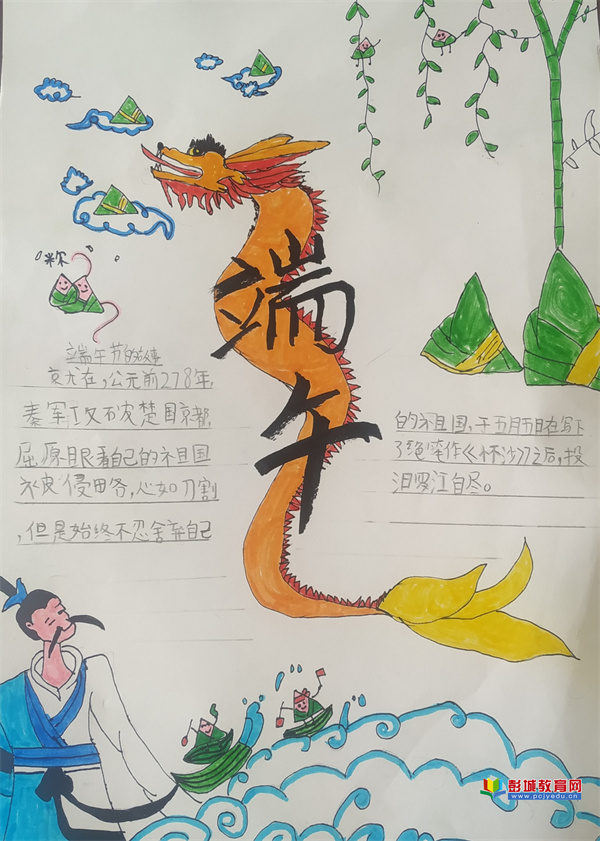 粽
端
午
端午节的故事
在,公元前278年,
秦军攻破楚国京都,
屈原眼看自己的祖国
被侵略,心如刀割
,但是始终不忍舍弃自己
的祖国,于五月五日在写下
了绝笔作《怀沙》之后,投
汨罗江自尽。
彭城教育网
www.pcjyedu.cn